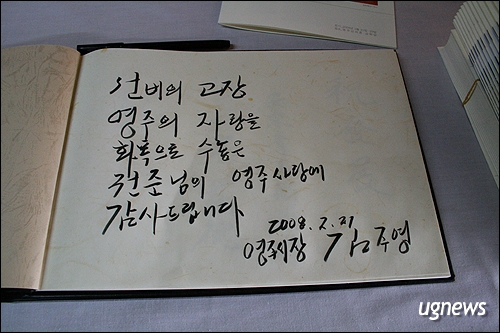 선비의 고장
영주의 자랑을
화폭으로 수놓은
권준님의 영주사랑에
감사드립니다
2008. 7. 21
영주시장 김주영
ugnews